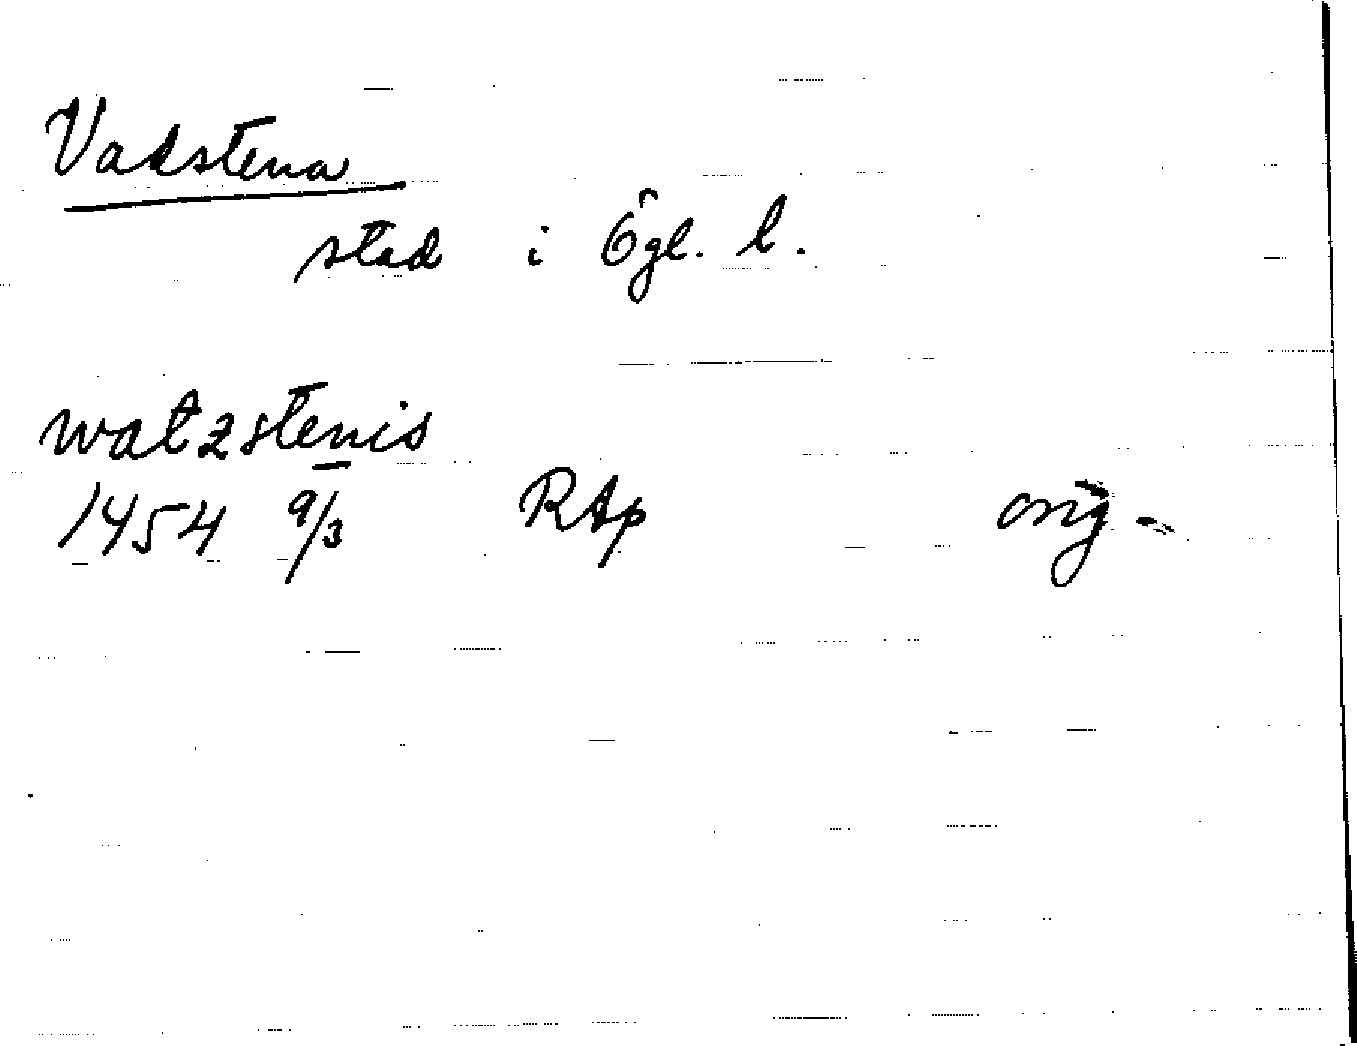 Vadstena
stad i Ögl. l.
watzstenis
1454 9/3 RAp orig -